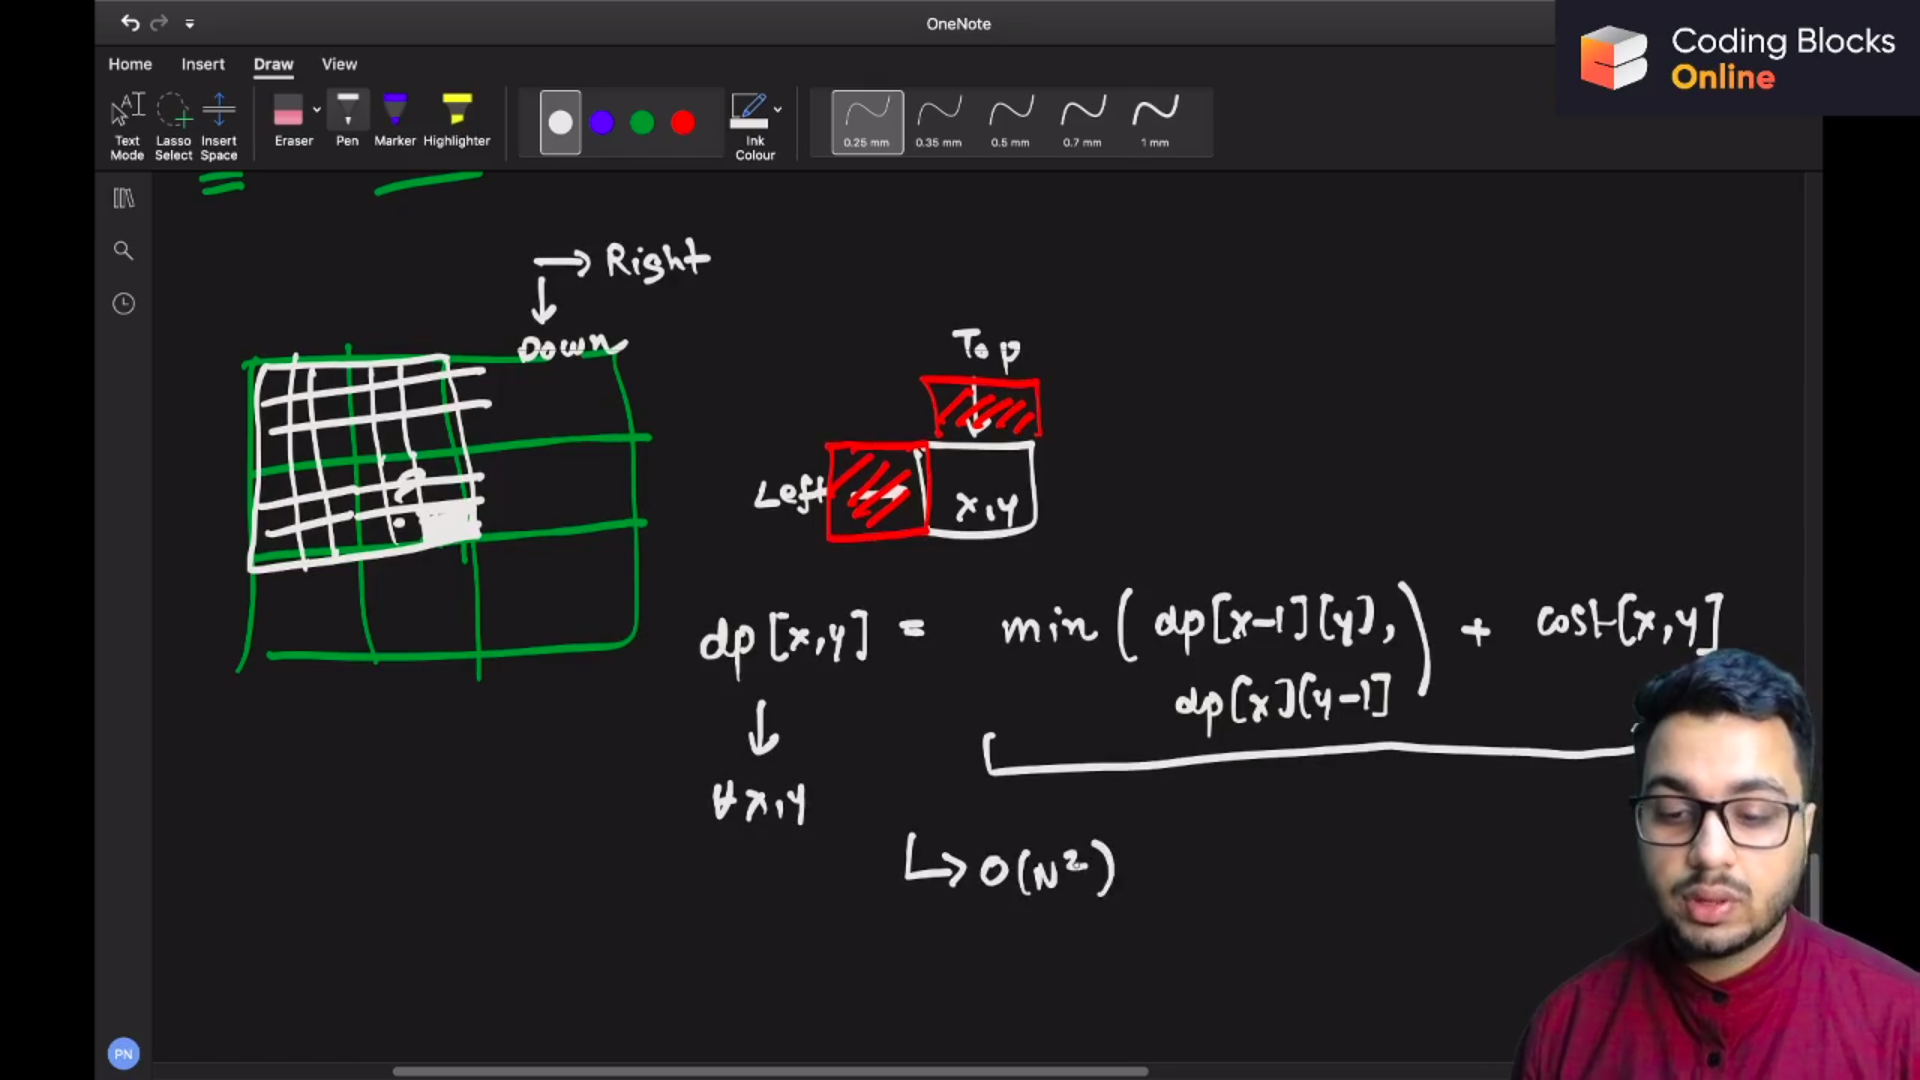 OneNote
Coding Blocks
Online
Home Insert Draw View
Text Mode
Lasso Select
Insert Space
Eraser
Pen
Marker
Highlighter
Ink Colour
0.25 mm
0.35 mm
0.5 mm
0.7 mm
1 mm
→ Right
↓
Down
Top
Left
x,y
?
dp[x,y] = min(dp[x-1][y], dp[x][y-1]) + cost[x,y]
↓
∀ x,y
↳ O(N²)
PN